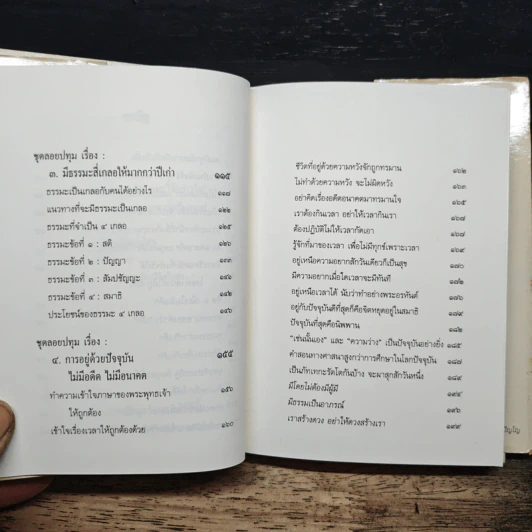 ชุดลอยปทุม เรื่อง :
๓. มีธรรมะสี่เกลอให้มากกว่าปีเก่า ๑๑๕
ธรรมะเป็นเกลอกับคนได้อย่างไร ๑๑๘
แนวทางที่จะมีธรรมะเป็นเกลอ ๑๒๒
ธรรมะที่จำเป็น ๔ เกลอ ๑๒๕
ธรรมะข้อที่ ๑ : สติ ๑๒๖
ธรรมะข้อที่ ๒ : ปัญญา ๑๓๓
ธรรมะข้อที่ ๓ : สัมปชัญญะ ๑๔๖
ธรรมะข้อที่ ๔ : สมาธิ ๑๔๒
ประโยชน์ของธรรมะ ๔ เกลอ ๑๔๖
ชุดลอยปทุม เรื่อง :
๔. การอยู่ด้วยปัจจุบัน ๑๕๕
ไม่มีอดีต ไม่มีอนาคต
ทำความเข้าใจภาษาของพระพุทธเจ้า ๑๕๖
ให้ถูกต้อง
เข้าใจเรื่องเวลาให้ถูกต้องด้วย ๑๖๐
ชีวิตที่อยู่ด้วยความหวังจักถูกทรมาน ๑๖๒
ไม่ทำด้วยความหวัง จะไม่ผิดหวัง ๑๖๓
อย่าคิดเรื่องอดีตอนาคตมาทรมานใจ ๑๖๕
เราต้องกินเวลา อย่าให้เวลากินเรา ๑๖๗
ต้องปฏิบัติไม่ให้เวลากัดเอา ๑๖๗
รู้จักที่มาของเวลา เพื่อไม่มีทุกข์เพราะเวลา ๑๖๙
อยู่เหนือความอยากสักวันเดียวก็เป็นสุข ๑๗๖
มีความอยากเมื่อใดเวลาจะมีทันที
อยู่เหนือเวลาได้ นับว่าทำอย่างพระอรหันต์
อยู่กับปัจจุบันดีที่สุดก็คือจิตหยุดอยู่ในสมาธิ
ปัจจุบันที่สุดคือนิพพาน ๑๘๒
"เช่นนั้นเอง" และ "ความว่าง" เป็นปัจจุบันอย่างยิ่ง ๑๘๕
คำสอนทางศาสนาสูงกว่าการศึกษาในโลกปัจจุบัน ๑๘๗
เป็นภัทเทกะรัตโตกันบ้าง จะผาสุกสักวันหนึ่ง ๑๘๙
มีโดยไม่ต้องมีผู้มี
มีธรรมเป็นอาภรณ์ ๑๙๖
เราสร้างดวง อย่าให้ดวงสร้างเรา ๑๙๙